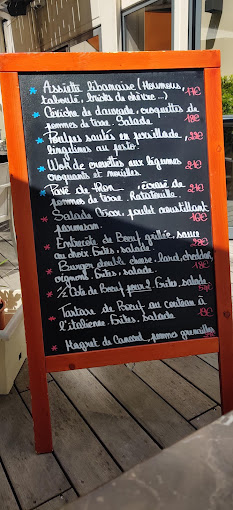 Assiette libanaise (Houmous,
taboulé, bricks de chèvre...) 17€
Céviche de daurade, croquettes de
pommes de terre. Salade 18€
Poulpes sautés en persillade,
linguines au pesto! 22€
Wok de crevettes aux légumes
croquants et nouilles 21€
Pavé de , écrasé de
pommes de terre, Ratatouille. 21€
Salade César, poulet croustillant
parmesan. 16€
Entrecôte de Boeuf grillée, sauce
au choix. Frites, salade 28€
Burger double cheese, lard, cheddar,
oignons, frites, salade. 18€
½ Côte de Boeuf pour 2 frites, salade
Tartare de Boeuf au couteau à
l'italienne. Frites, salade
Magret de Canard, pommes grenailles